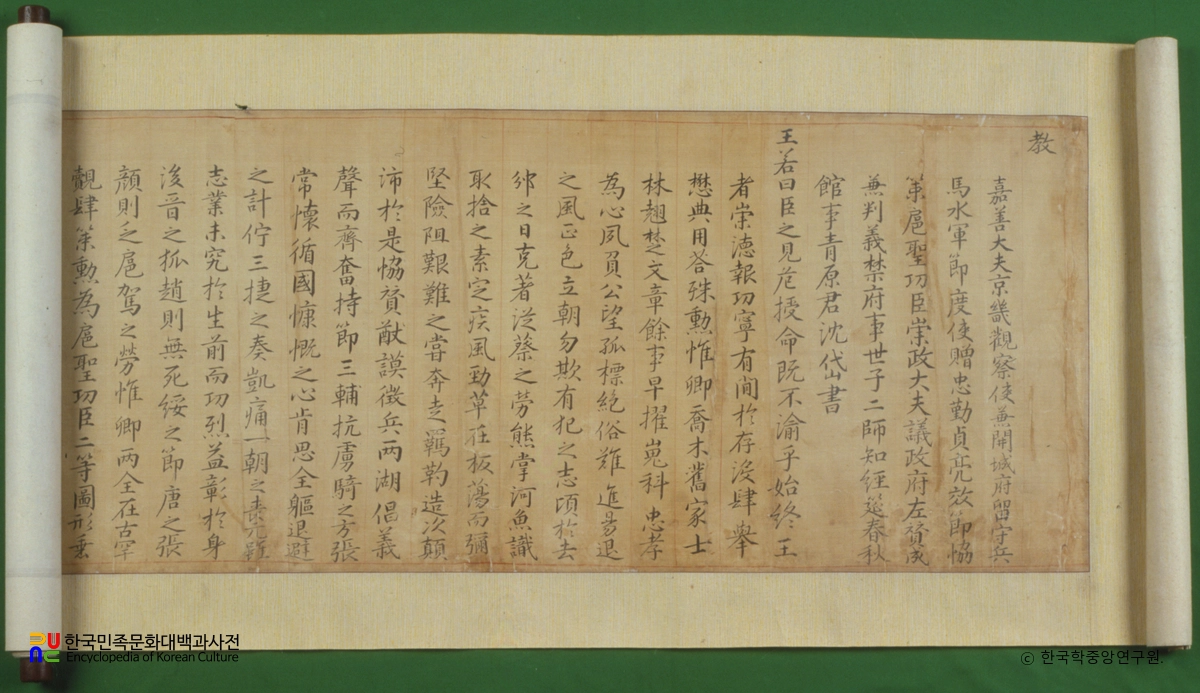 教
嘉善大夫京畿觀察使兼開城府留守兵
馬水軍節度使贈忠勤貞亮效節協
策扈聖功臣崇政大夫議政府左贊成
兼判義禁府事世子二師知經筵春秋
館事青原君沈岱書
王若曰臣之見危授命既不渝乎始終王
者崇德報功寧有間於存沒肆擧
懋典用答殊勳惟卿喬木舊家士
林翹楚文章餘事早擢嵬科忠孝
為心夙負公望孤標絶俗難進易退
之風正色立朝勿欺有犯之志頃於去
邠之日克著從蔡之勞熊掌河魚識
取捨之素定疾風勁草在板蕩而彌
堅險阻艱難之嘗奔走羈靮造次顛
沛於是協贊猷謨徵兵兩湖倡義
聲而齊奮持節三輔抗虜騎之方張
常懷徇國慷慨之心肯思全軀退避
之計佇三捷之奏凱痛一朝之喪元
志業未究於生前而功烈益彰於身
後晉之狐趙則無死綏之節唐之張
顔則乏扈駕之勞惟卿兩全在古罕
覯肆策勳為扈聖功臣二等圖形垂
한국민족문화대백과사전
Encyclopedia of Korean Culture
© 한국학중앙연구원.